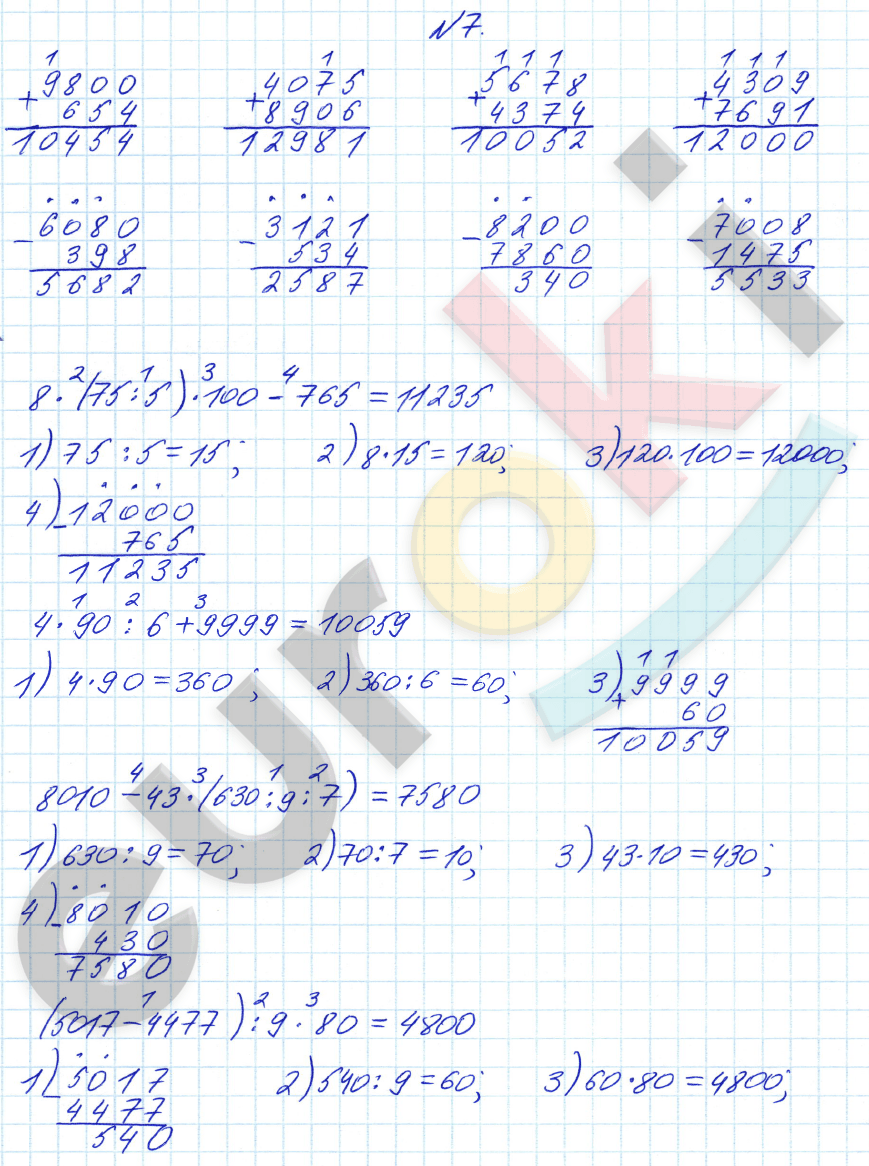 №7.
1 1 1 1 1 1 1 1
9800 4075 5678 4309
+ 654 + 8906 + 4374 + 7691
10454 12981 10052 12000
- 6080 - 3121 - 8200 - 7008
398 534 7860 1475
5682 2587 340 5533
2 1 3 4
8·(75:5)·100-765=11235
1) 75:5=15; 2) 8·15=120; 3) 120·100=12000;
4) - 12000
765
11235
1 2 3
4·90:6+9999=10059
1) 4·90=360; 2) 360:6=60; 3) + 9999
1 1
60
10059
4 3 1 2
8010-43·(630:9:7)=7580
1) 630:9=70; 2) 70:7=10; 3) 43·10=430;
4) - 8010
430
7580
1 2 3
(5017-4477):9·80=4800
1) - 5017 2) 540:9=60; 3) 60·80=4800;
4477
540
euroki